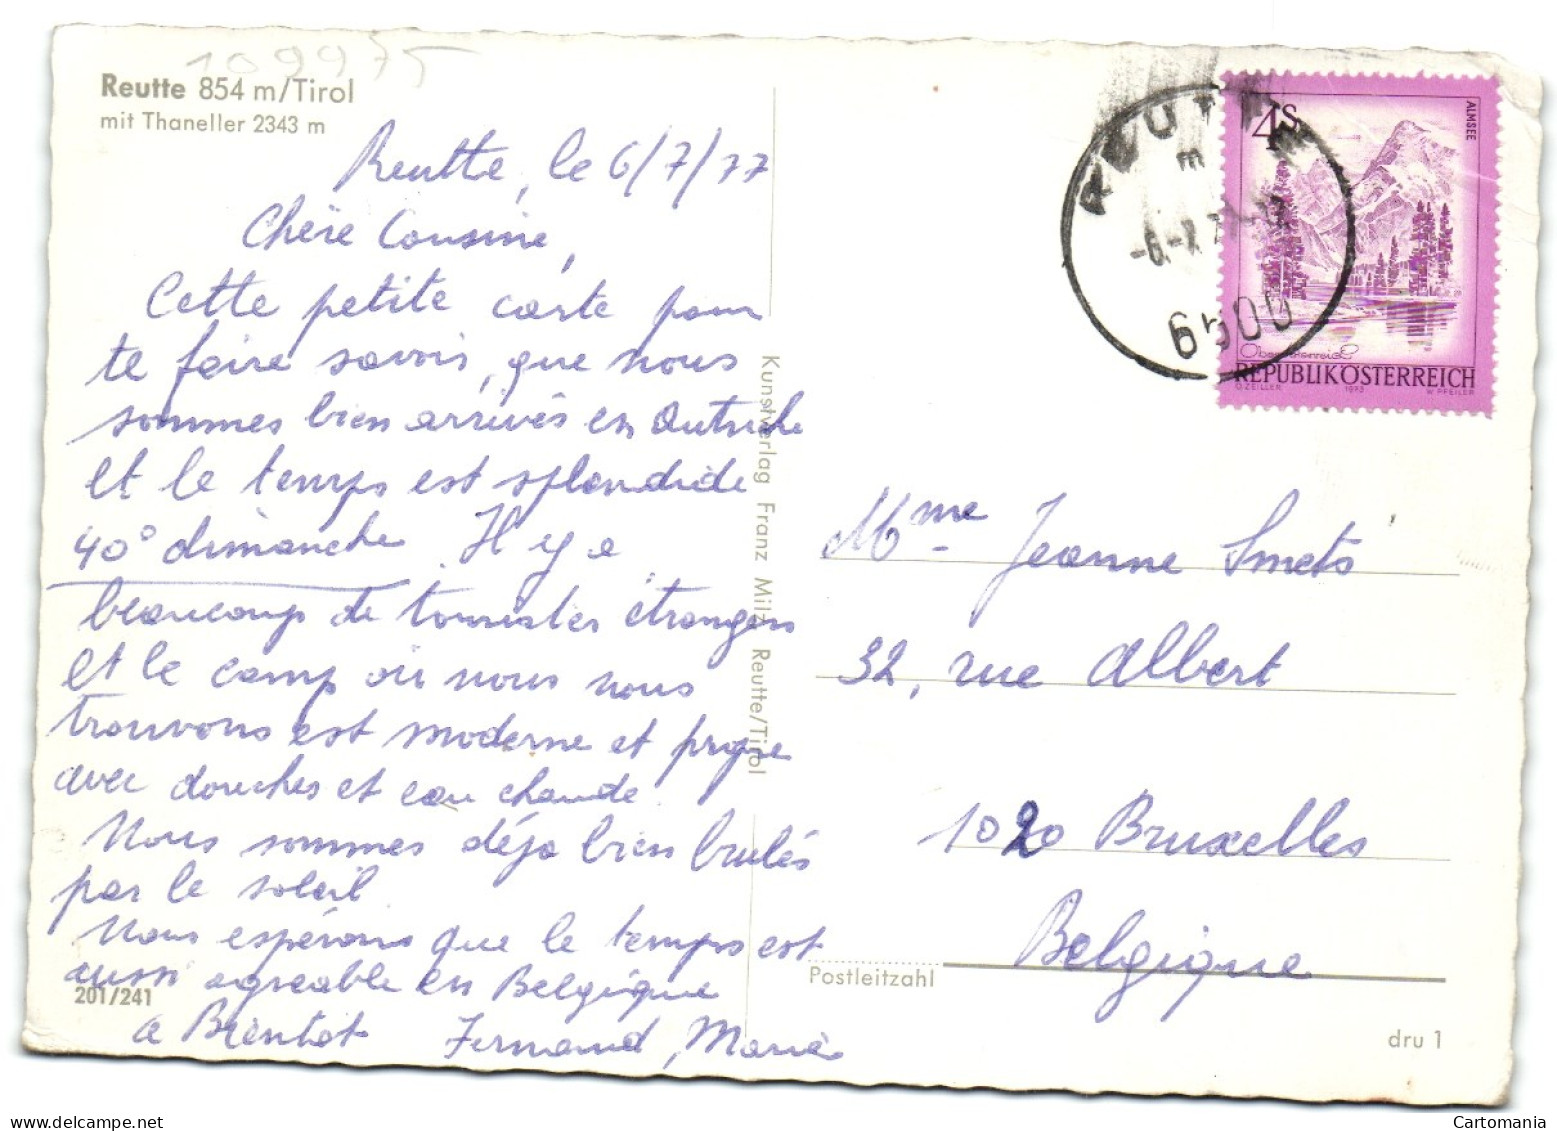 109975
Reutte 854 m/Tirol
mit Thaneller 2343 m
Reutte, le 6/7/77
Chère Cousine,
Cette petite carte pour
te faire savoir, que nous
sommes bien arrivés en Autriche
et le temps est splendide
40° dimanche. Il y a
beaucoup de touristes étrangers
et le camp où nous nous
trouvons est moderne et propre
avec douches et eau chaude.
Nous sommes déja bien brulés
par le soleil
Nous espérons que le temps est
aussi agréable en Belgique
a Bientot Fernand, Maria
201/241
Kunstverlag Franz Milz Reutte/Tirol
REUTTE
6600
4S
ALMSEE
Oberösterreich
REPUBLIK ÖSTERREICH
O. ZEILLER 1973 W. PFEILER
Mme Jeanne Smets
32, rue Albert
1020 Bruxelles
Belgique
Postleitzahl
dru 1
Cartomania